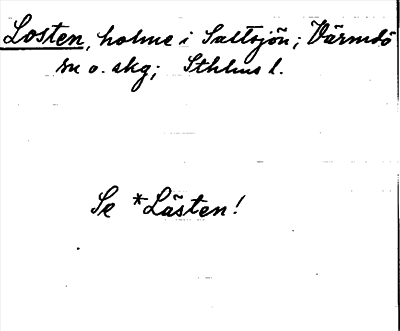 Losten, holme i Saltsjön; Värmdö
sn o. skg; Sthlms l.
Se *Låsten!